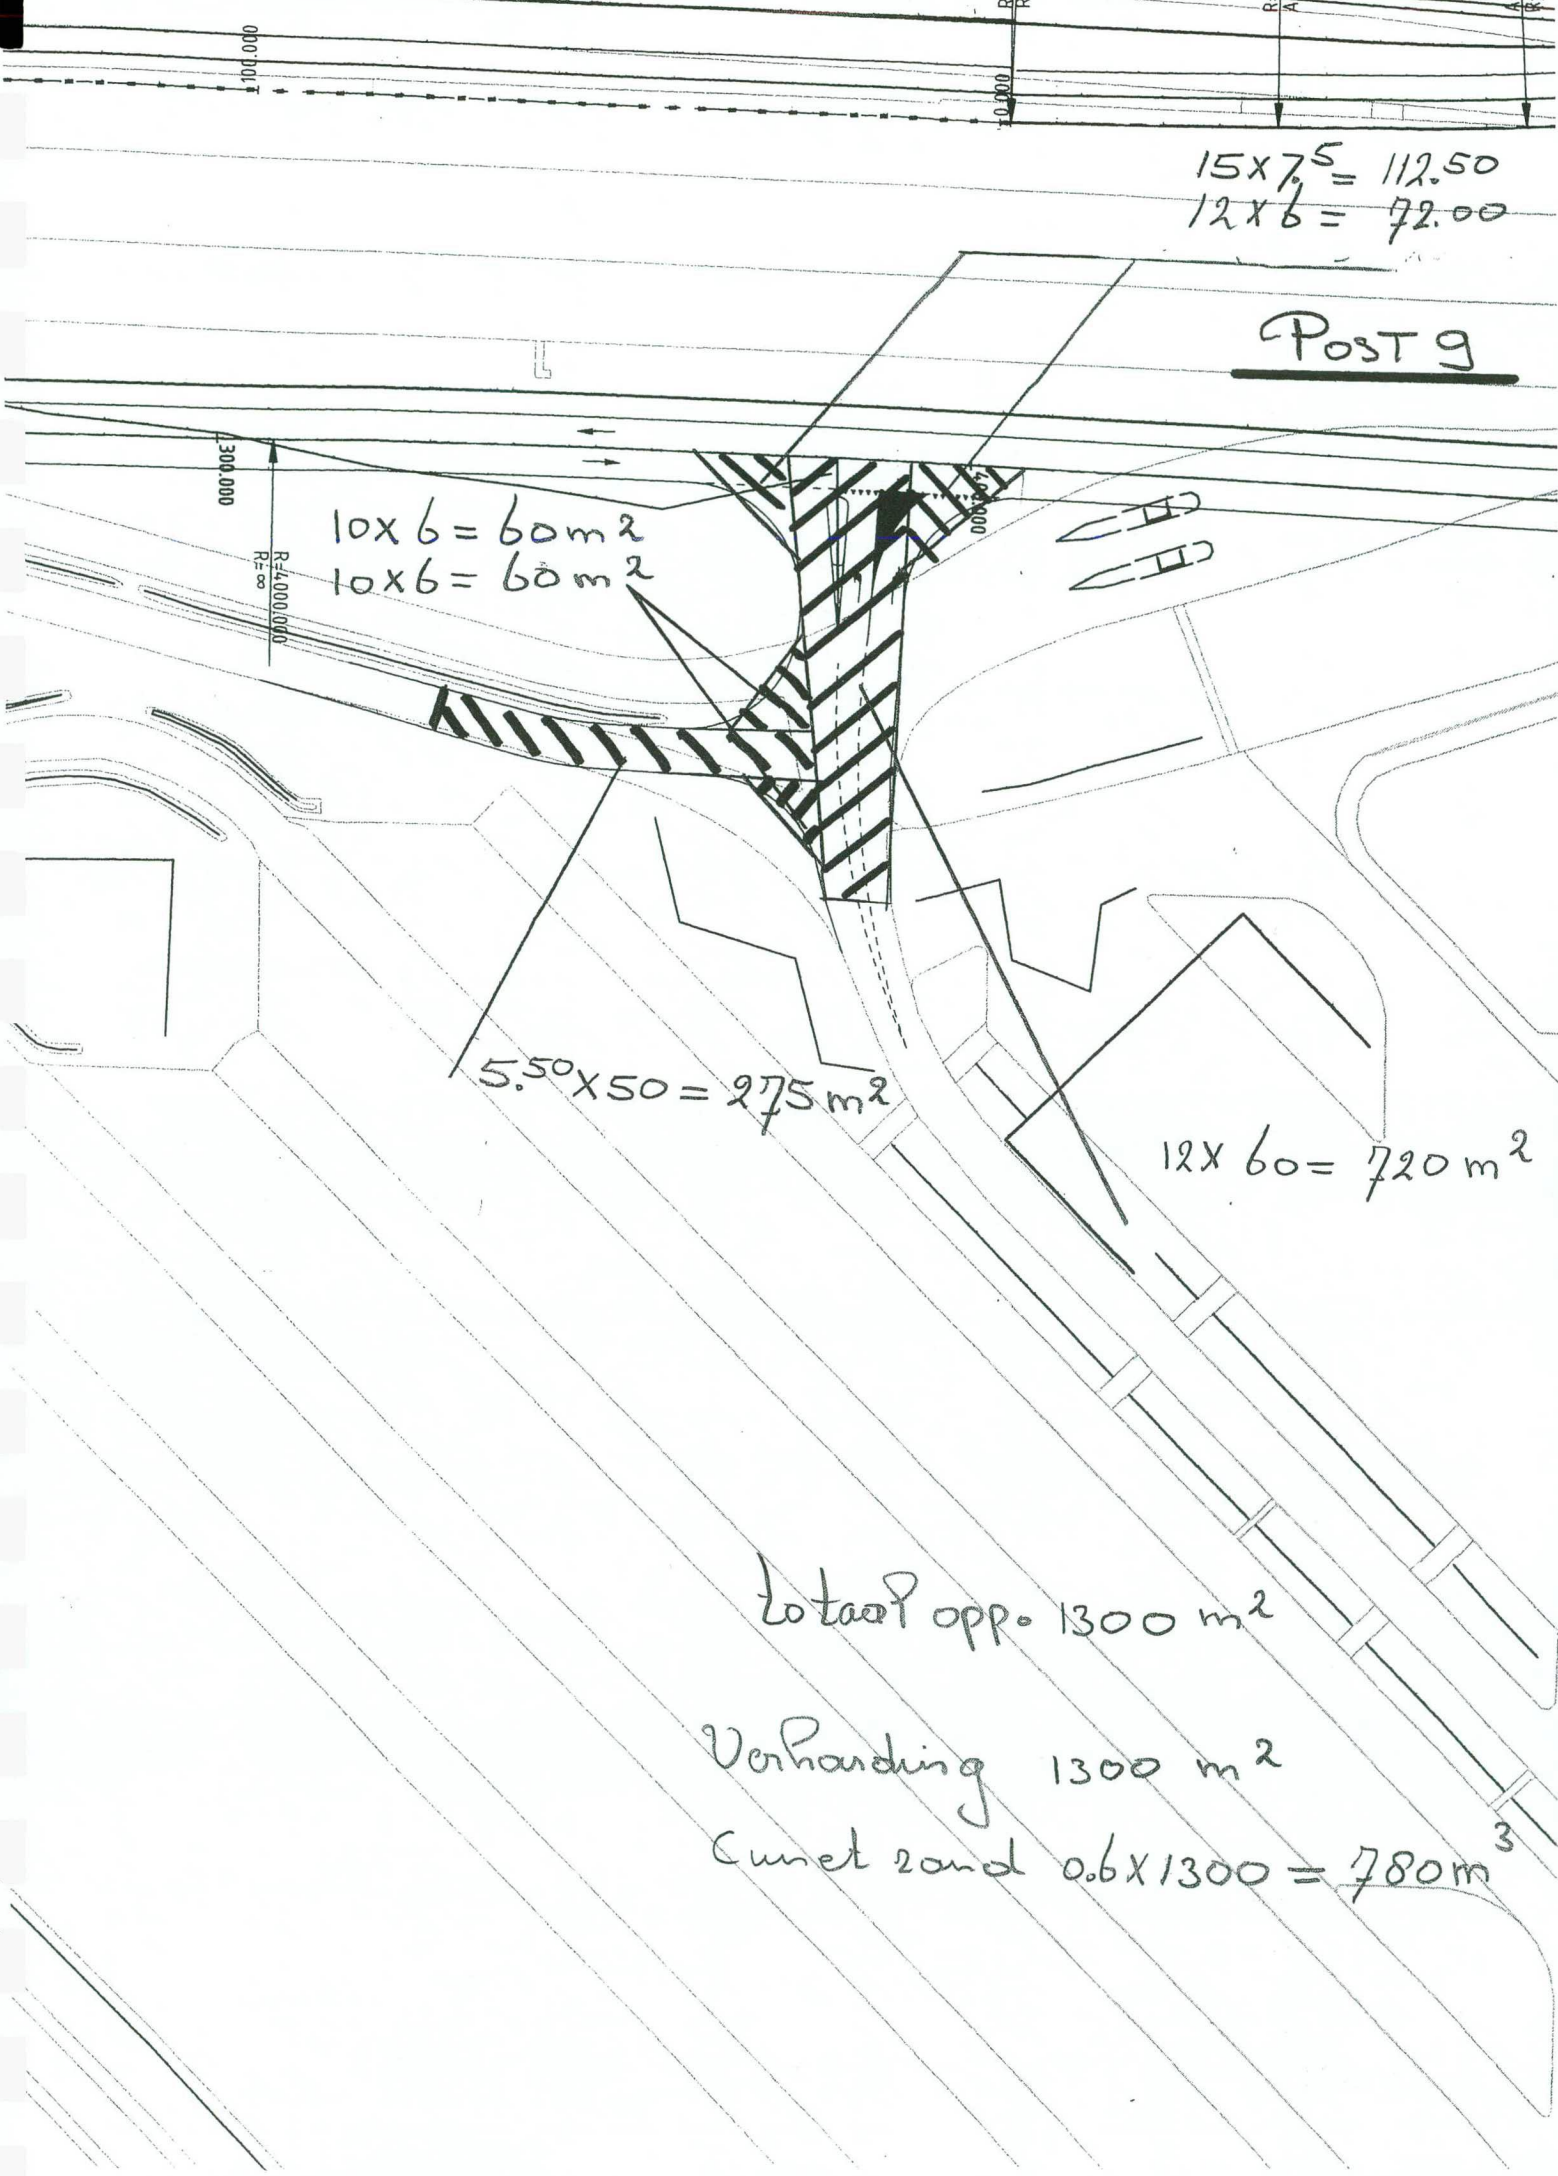 100.000
10.000
15 x 7.5 = 112.50
12 x 6 = 72.00
POST 9
300.000
R=4000.000
R=∞
10 x 6 = 60 m2
10 x 6 = 60 m2
5.50 x 50 = 275 m2
12 x 60 = 720 m2
totaal opp. 1300 m2
Verharding 1300 m2
Cunet zand 0.6 x 1300 = 780 m3